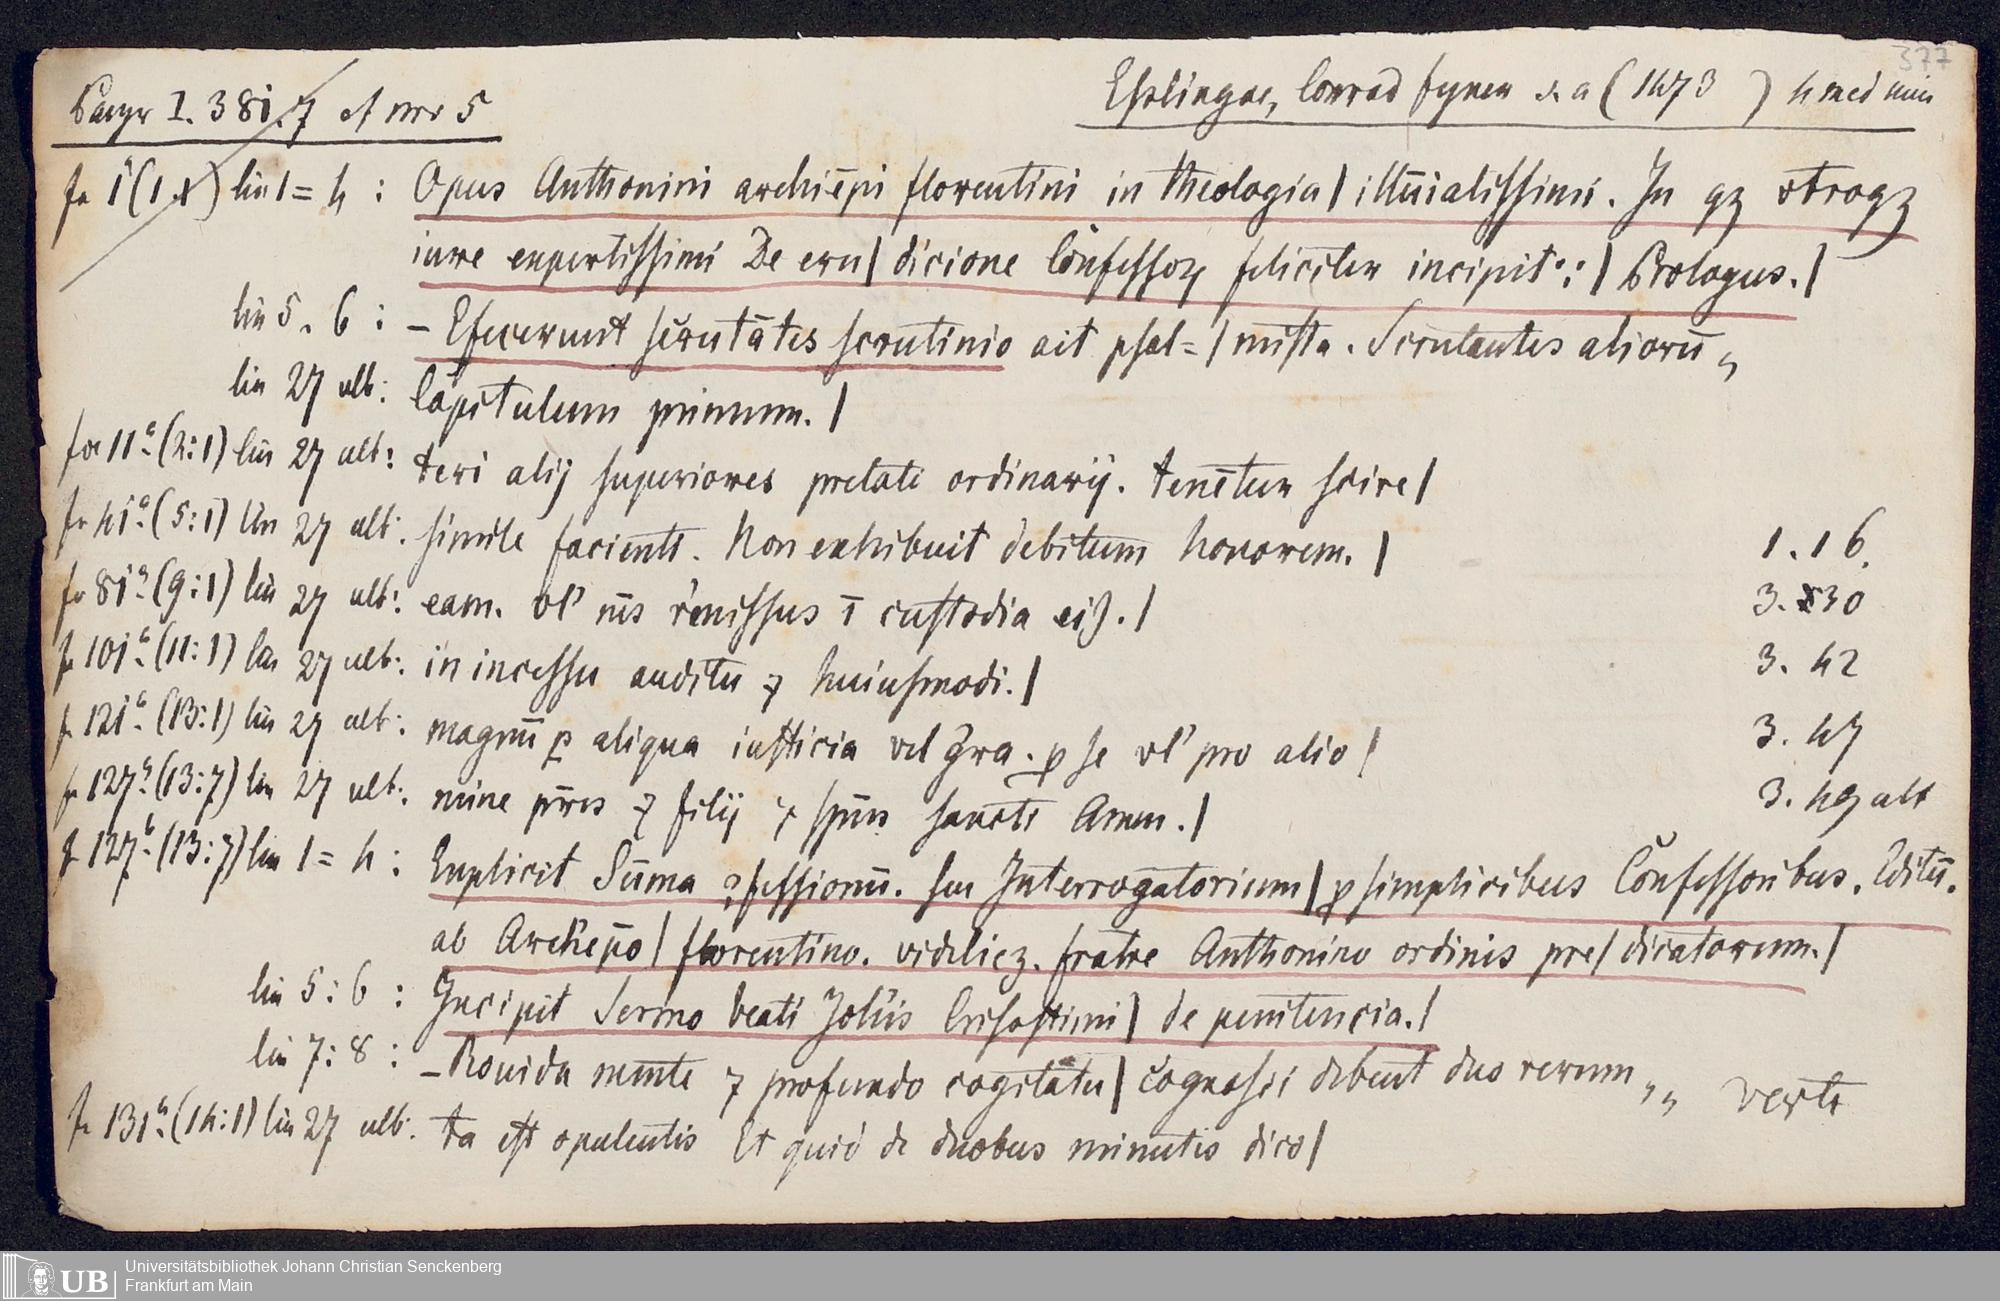 377
Panzr I. 381.7 et nro 5
Esslingae, Conrad fyner s. a (1473 ) 4 med min
fo 1 (1.1) lin 1=4 : Opus Anthonini archiēpi florentini in theologia | illūialissimi. In qz vtroqz
iure expertissimi De eru | dicione Cōnfessoꝝ feliciter incipit : | Prologus. |
lin 5. 6 : – Efecerunt scrutātes scrutinio ait psal= | mista. Scrutantes aliorū „
lin 27 ult: Capitulum primum. |
fol 11a (2:1) lin 27 ult: teri alij superiores prelati ordinarij. tenētur scire |
fo 41a (5:1) lin 27 ult: simile facienti. Non exhibuit debitum honorem. |
1. 16.
fo 81a (9:1) lin 27 ult: eam. vl' nīs remissus ī custodia eiꝰ. |
3. 30
fo 101a (11:1) lin 27 ult: in incessu auditu ⁊ huiusmodi. |
3. 42
fo 121a (13:1) lin 27 ult: magnū ꝑ aliqua iusticia vel gra. ꝓ se vl' pro alio |
3. 47
fo 127a (13:7) lin 27 ult: mine pīris ⁊ filij ⁊ spūs sancti Amen. |
3. 49 alt
fo 127b (13:7) lin 1=4 : Explicit Sūma ꝯfessionū. seu Interrogatorium | ꝓ simplicibus Cōnfessoribus. Editū.
ab Archiepō | florentino. videlicz. fratre Anthonino ordinis pre | dicatorum. |
lin 5:6 : Incipit Sermo beati Johīis Crisostimi | de penitencia. |
lin 7:8 : – Prouida mente ⁊ profundo cogitātu | cognosci debent duo rerum „ „ verte
fo 131a (14:1) lin 27 ult: ta est opulentis Et quid de duobus minutis dico |
Universitätsbibliothek Johann Christian Senckenberg
UB Frankfurt am Main